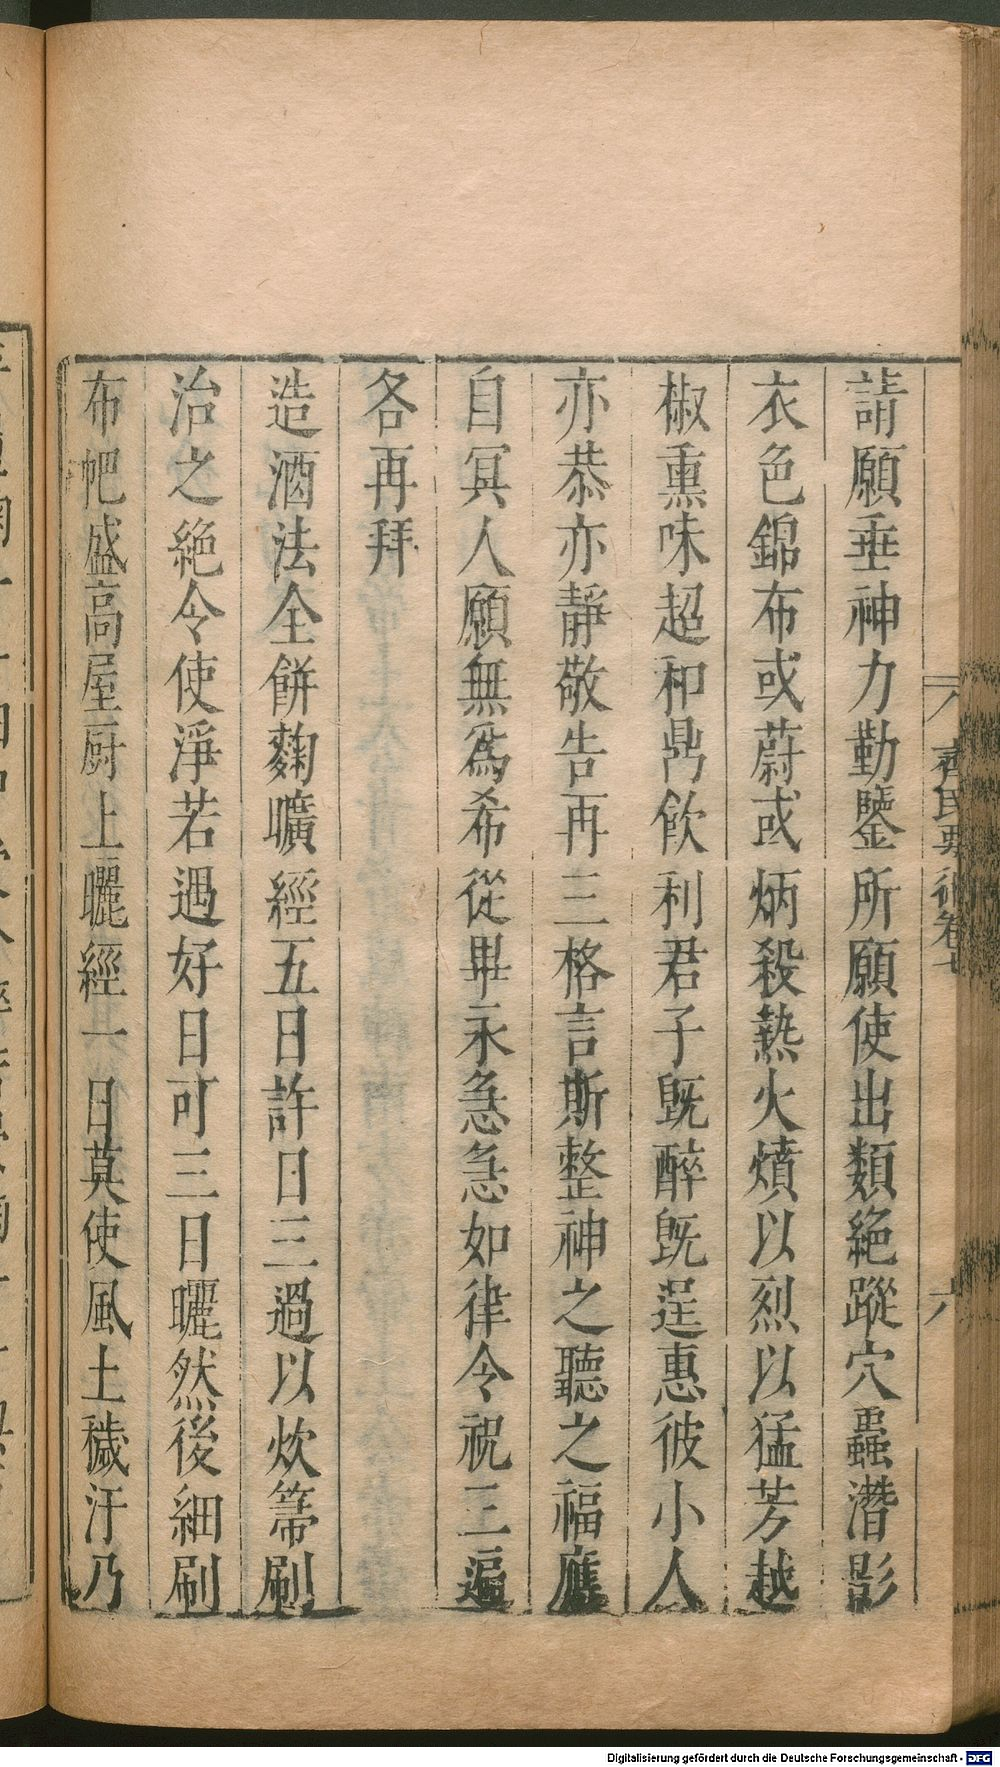 請願垂神力勤鑒所願使出類絕蹤穴蟲潛影
衣色錦布或蔚或炳殺熱火燌以烈以猛芳越
椒熏味超和鼎飲利君子旣醉旣逞惠彼小人
亦恭亦靜敬告再三格言斯整神之聽之福應
自冥人願無爲希從畢永急急如律令祝三遍
各再拜
造酒法全餅麴曠經五日許日三過以炊箒刷
治之絕令使淨若遇好日可三日曬然後細刷
布帊盛高屋厨上曬經一日莫使風土穢汙乃
齊民要術卷七
六
Digitalisierung gefördert durch die Deutsche Forschungsgemeinschaft - DFG